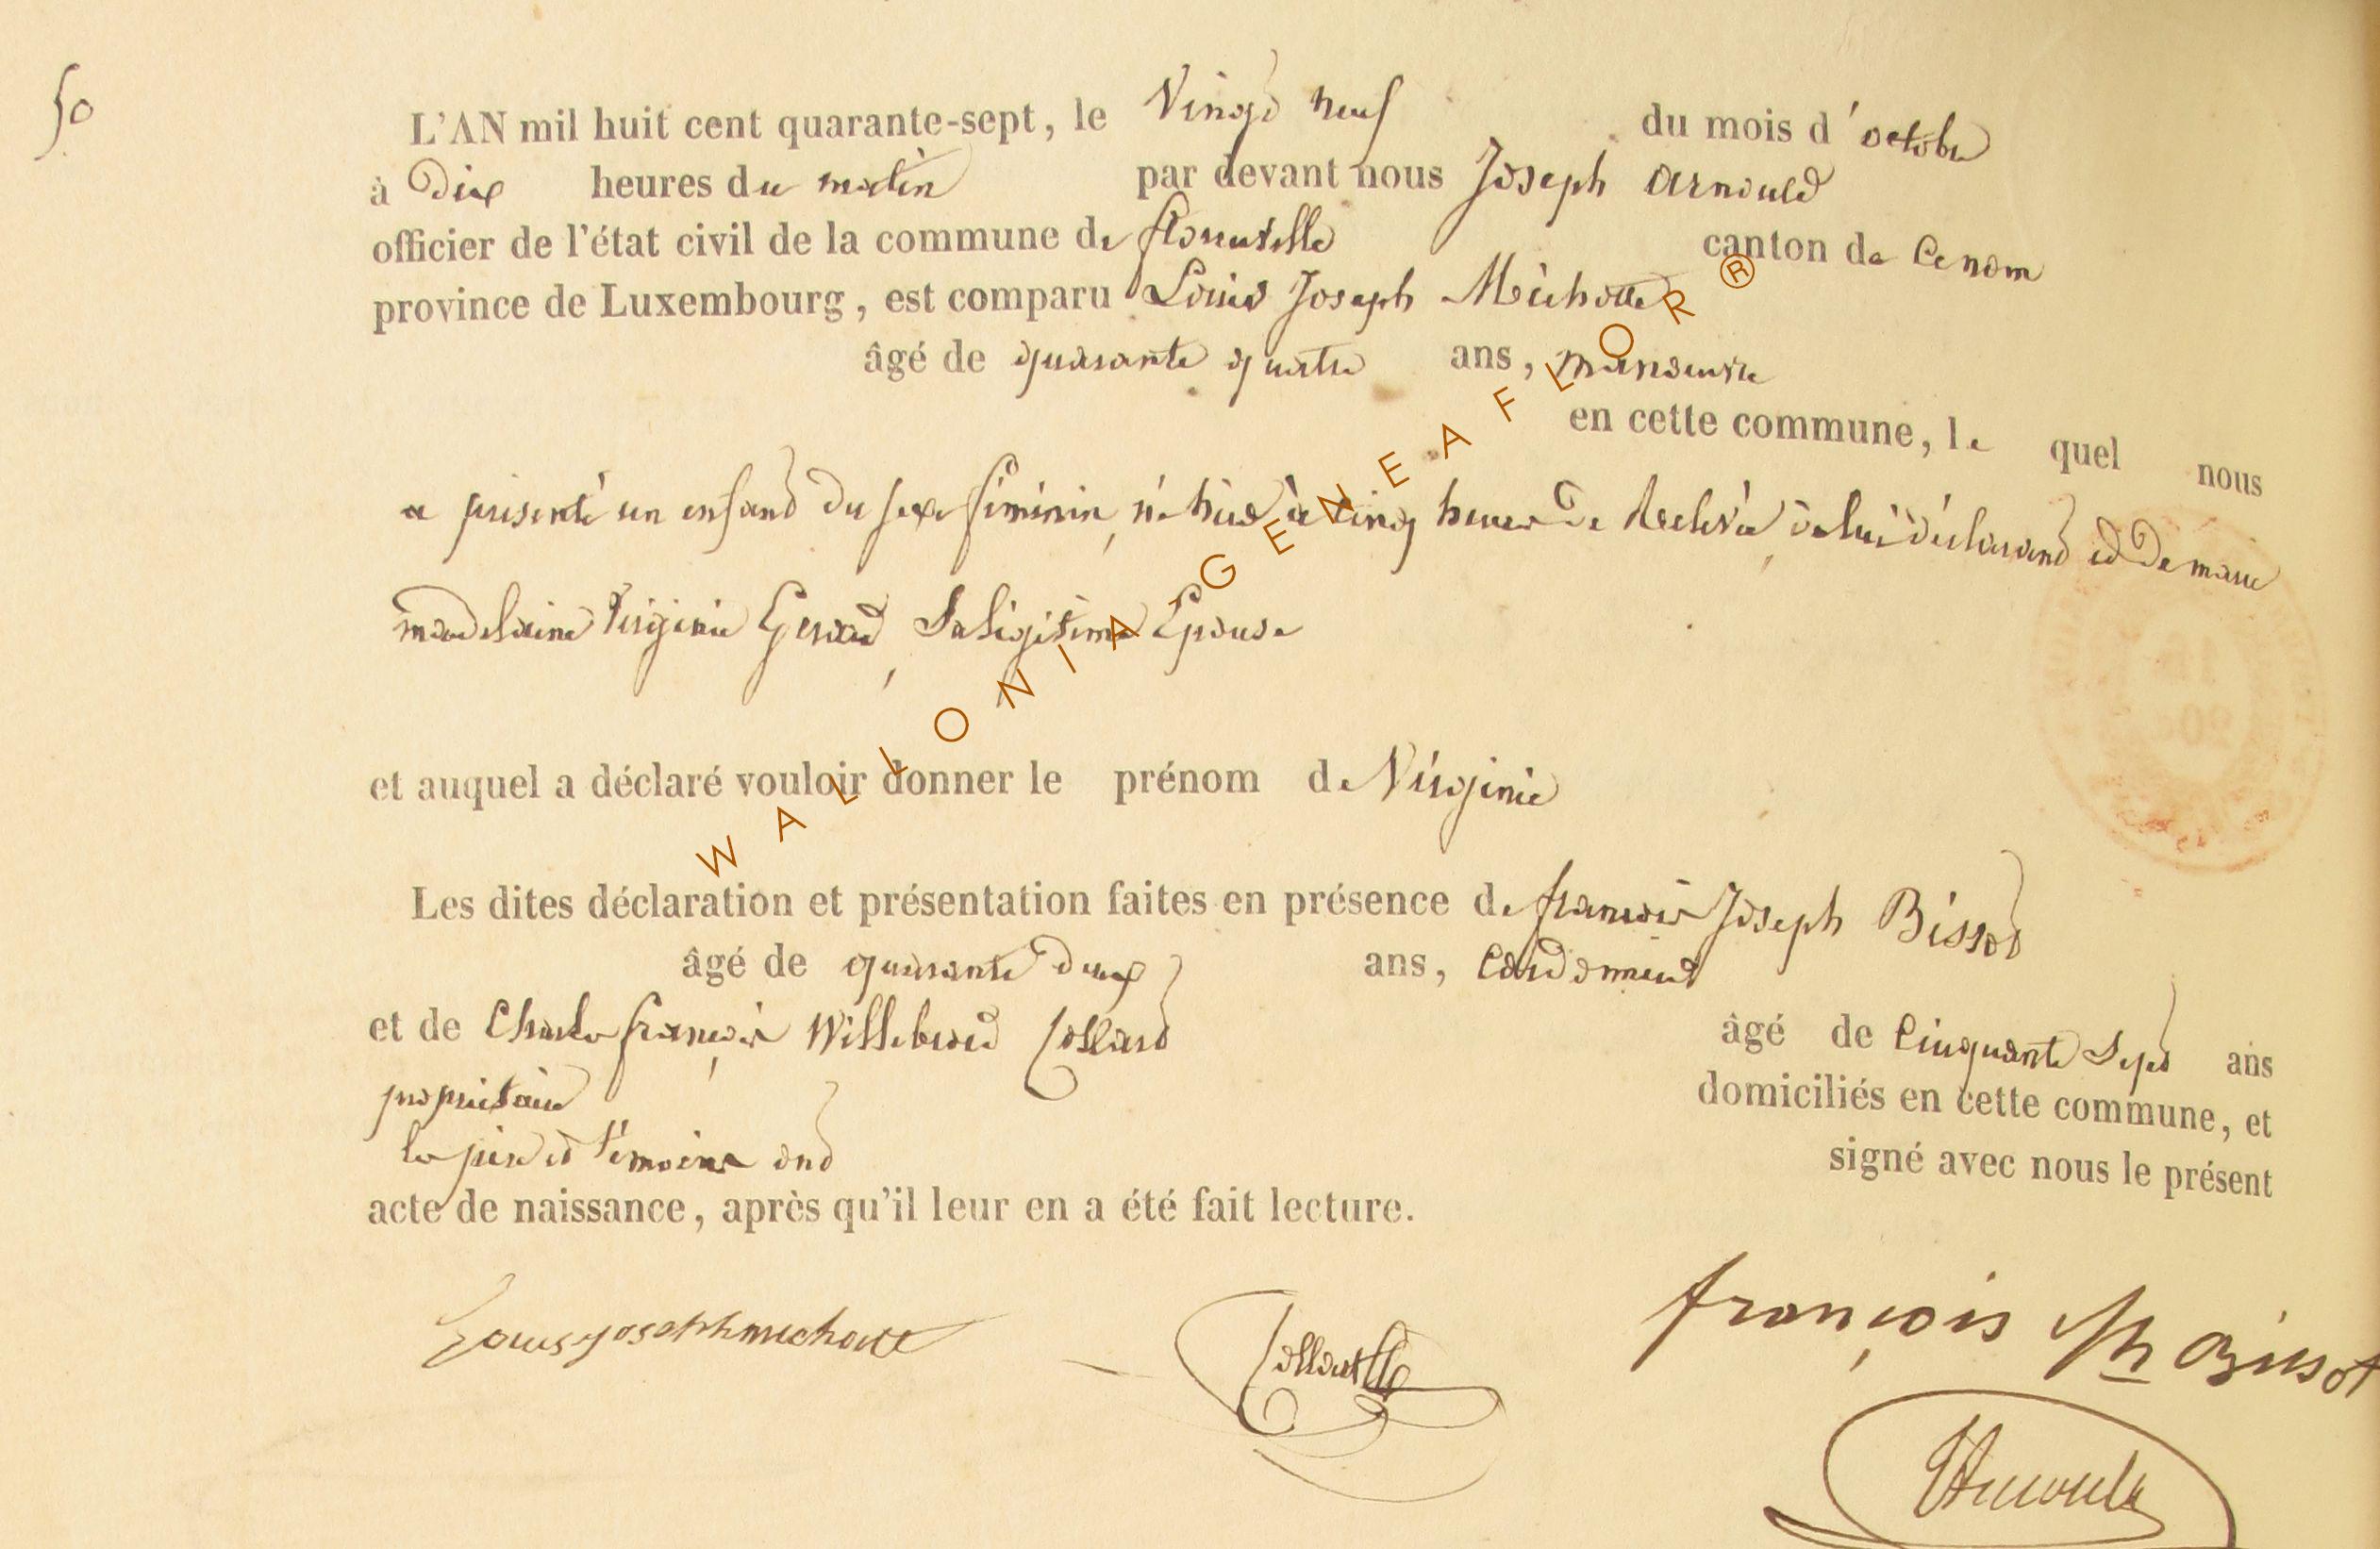 50
L'AN mil huit cent quarante-sept, le Vingt neuf du mois d'octobre
à Dix heures du matin par devant nous Joseph arnould
officier de l'état civil de la commune de florenville canton de
province de Luxembourg, est comparu Louis Joseph Michotte
âgé de quarante quatre ans, manoeuvre
en cette commune, le quel nous
a présenté un enfant du sexe féminin, né hier à cinq heures De Relevée, de lui déclarant et De marie
madelaine Virginie Gerard, Sa légitime Epouse
et auquel a déclaré vouloir donner le prénom de Virginie
Les dites déclaration et présentation faites en présence de françois Joseph Bissot
âgé de quarante deux ans, Cordonnier
et de Charles françois Willebrord Collard âgé de Cinquante Sept ans
propriétaire domiciliés en cette commune, et
le père et témoins ont signé avec nous le présent
acte de naissance, après qu'il leur en a été fait lecture.
Louis joseph michotte
françois Jph Bissot
WALLONIA-GENEAFLOR ®